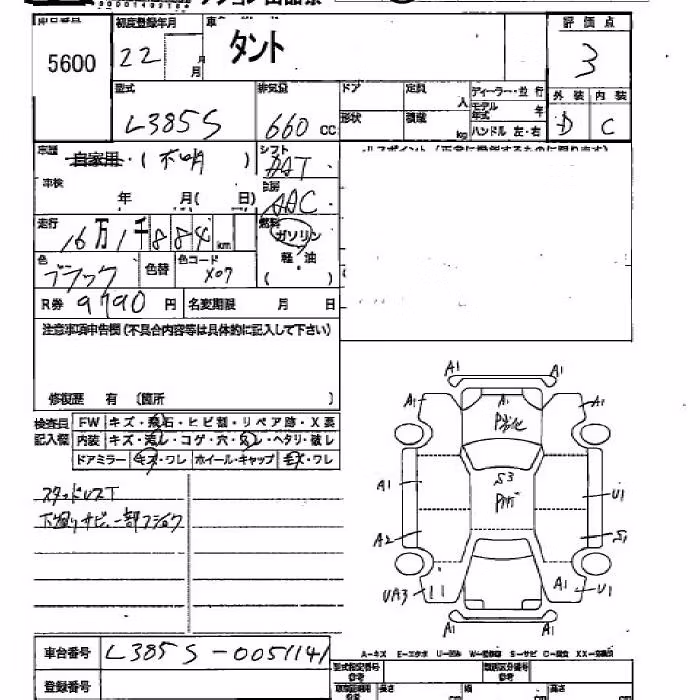 初度登録年月
タント
評価点
5600
22
月
月
3
型式
排気量
ドア
定員
人
ディーラー・並行
モデル年式 年
外装 内装
L385S
660 cc
形状
積載
kg
ハンドル 左・右
D
C
自家用・(不明 )
シフト
AT
車検
年 月( 日)
冷房
AAC
走行
16万1千884km
燃料
ガソリン
軽・油
( )
色
ブラック
色替
色コード
X07
R券 9790 円
名変期限 月 日
注意事項申告欄(不具合内容等は具体的に記入して下さい)
修復歴 有 〔箇所 〕
検査員記入欄
FW キズ・飛石・ヒビ割・リペア跡・X要
内装 キズ・汚レ・コゲ・穴・スレ・ヘタリ・破レ
ドアミラー キズ・ワレ ホイール・キャップ キズ・ワレ
スタッドレスT
下廻りサビ、一部フショク
A1
A1
A1
A1
A1
P劣化
A1
S3
Pガゲ
U1
A2
S1
UA3
A1
U1
A1
A1
A-キズ E-エクボ U-凹み W-補修跡 S-サビ C-腐食 XX-交換済
車台番号 L385S-0051141
登録番号
型式指定番号
類別区分番号
長さ cm
幅 cm
高さ cm